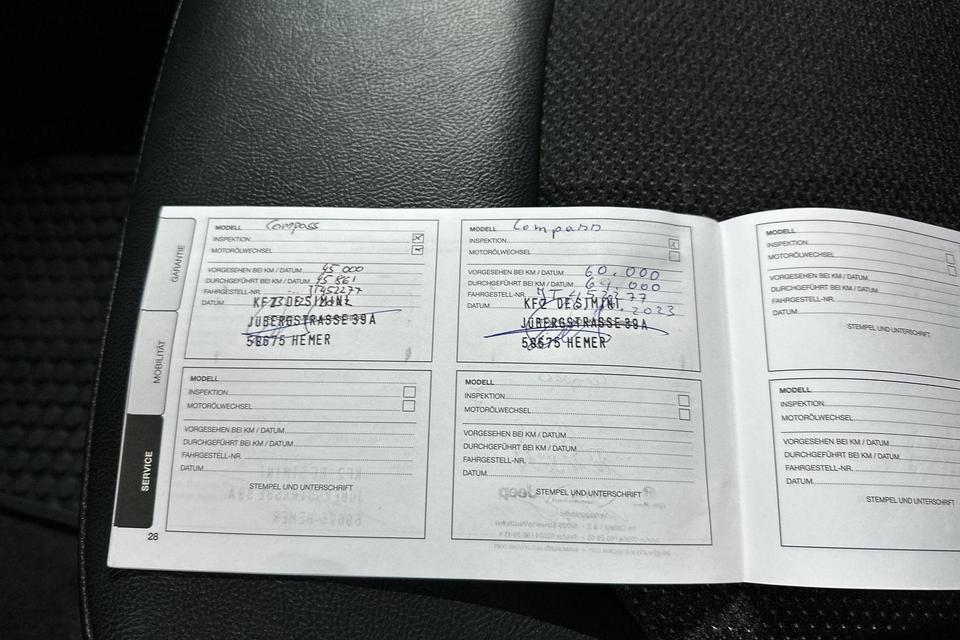 GARANTIE
MOBILITÄT
SERVICE
28
MODELL Compass
INSPEKTION
MOTORÖLWECHSEL
VORGESEHEN BEI KM / DATUM 45 000
DURCHGEFÜHRT BEI KM / DATUM 45 861
FAHRGESTELL-NR.
DATUM
KFZ DESIMINI
JÜBERGSTRASSE 39A
58675 HEMER
MODELL Compass
INSPEKTION
MOTORÖLWECHSEL
VORGESEHEN BEI KM / DATUM 60.000
DURCHGEFÜHRT BEI KM / DATUM 64.000
FAHRGESTELL-NR.
DATUM 2023
KFZ DESIMINI
JÜBERGSTRASSE 39A
58675 HEMER
MODELL
INSPEKTION
MOTORÖLWECHSEL
VORGESEHEN BEI KM / DATUM
DURCHGEFÜHRT BEI KM / DATUM
FAHRGESTELL-NR.
DATUM
STEMPEL UND UNTERSCHRIFT
MODELL
INSPEKTION
MOTORÖLWECHSEL
VORGESEHEN BEI KM / DATUM
DURCHGEFÜHRT BEI KM / DATUM
FAHRGESTELL-NR.
DATUM
STEMPEL UND UNTERSCHRIFT
MODELL
INSPEKTION
MOTORÖLWECHSEL
VORGESEHEN BEI KM / DATUM
DURCHGEFÜHRT BEI KM / DATUM
FAHRGESTELL-NR.
DATUM
STEMPEL UND UNTERSCHRIFT
MODELL
INSPEKTION
MOTORÖLWECHSEL
VORGESEHEN BEI KM / DATUM
DURCHGEFÜHRT BEI KM / DATUM
FAHRGESTELL-NR.
DATUM
STEMPEL UND UNTERSCHRIFT